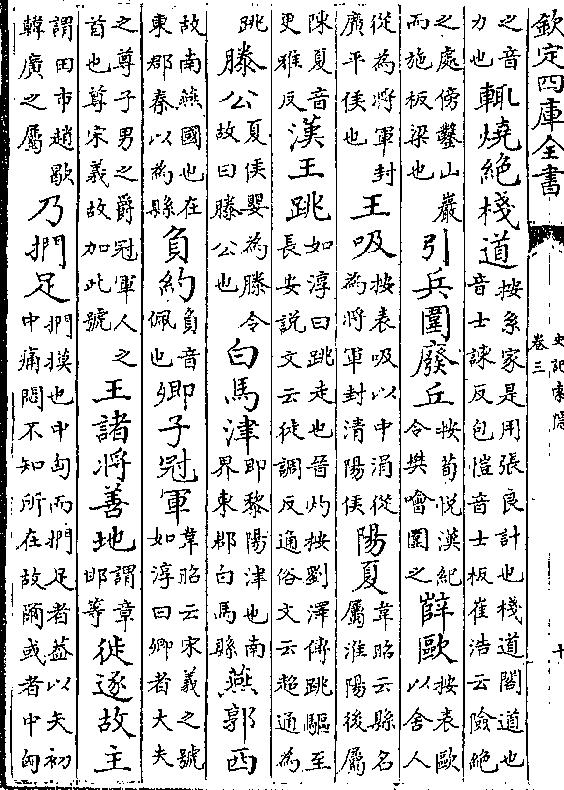 欽定四庫全書
史記索隱
卷三
十
之音力也輒燒絶棧道按系家是用張良計也棧道閣道也音士諫反包愷音士板崔浩云險絶
之處傍鑿山巖而施板梁也引兵圍廢丘按荀悦漢紀令樊噲圍之薛歐按表歐以舍人
從為將軍封廣平侯也王吸按表吸以中涓從為將軍封清陽侯陽夏韋昭云縣名屬淮陽後屬
陳夏音更雅反漢王跳如淳曰跳走也晉灼按劉澤傳跳驅至長安説文云徒調反通俗文云超通為
跳滕公夏侯嬰為滕令故曰滕公也白馬津即黎陽津也南界東郡白馬縣燕郭西
故南燕國也在東郡秦以為縣負約負音佩也卿子冠軍韋昭云宋義之號如淳曰卿者大夫
之尊子男之爵冠軍人之首也尊宋義故加此號王諸將善地謂章邯等徙逐故主
謂田市趙歇韓廣之屬乃捫足捫摸也中匈而捫足者葢以夫初中痛悶不知所在故爾或者中匈